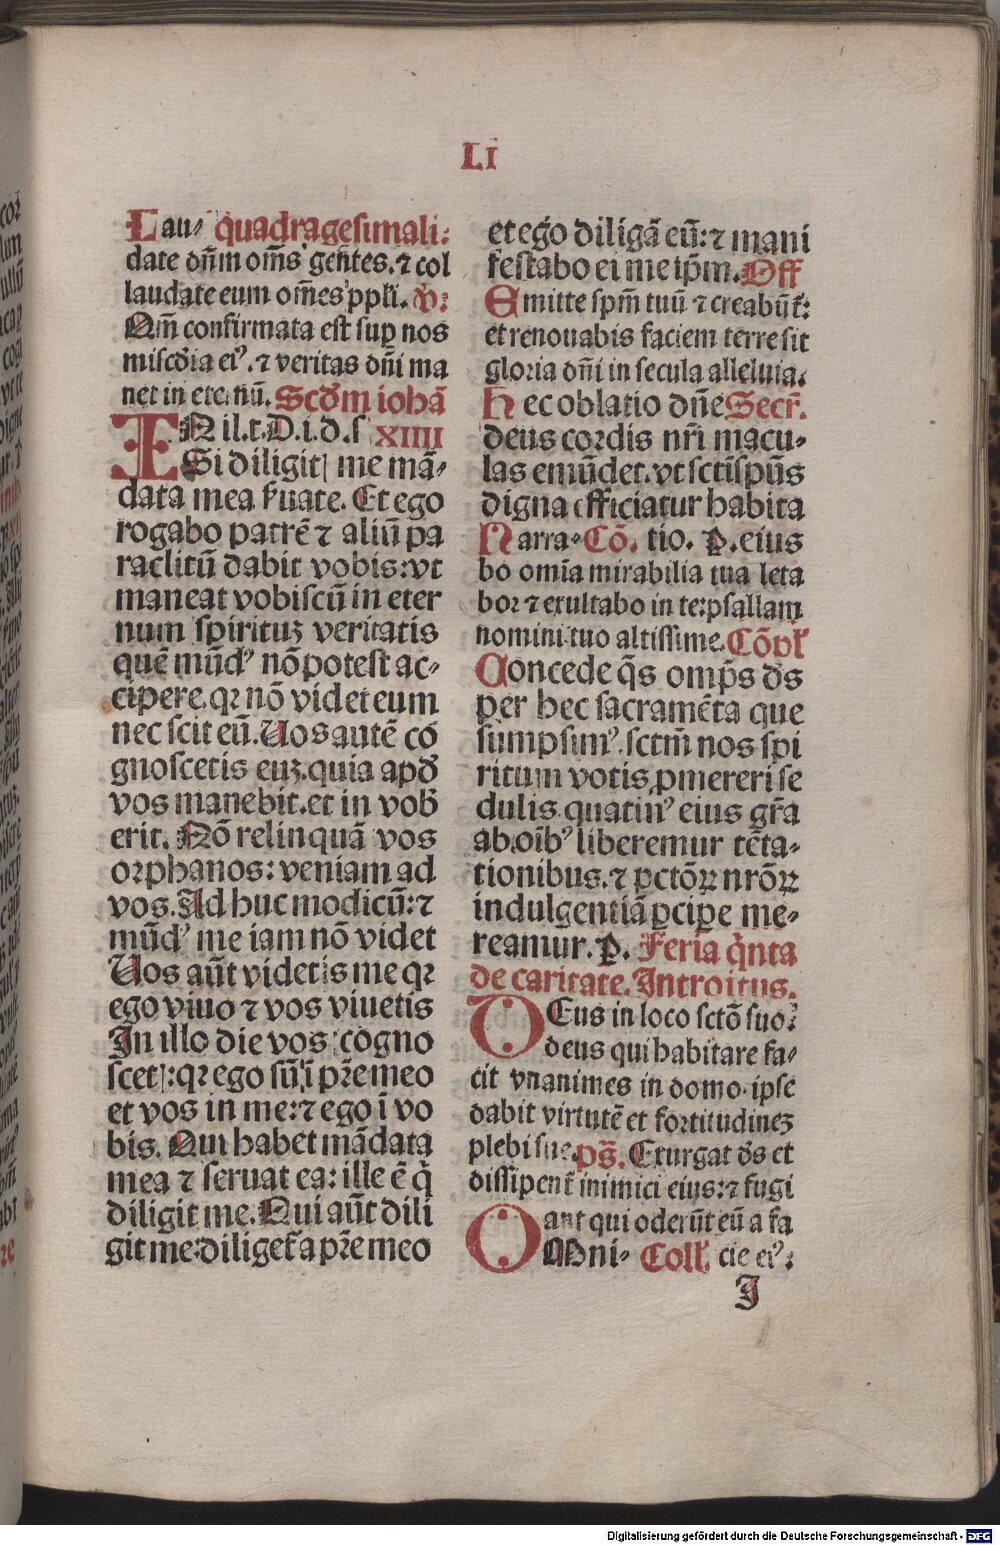 LI
Lau⸗ quadragesimali:
date dn̄m om̄s gen̄tes. ⁊ col
laudate eum om̄es ppl̄i. V̄:
Qm̄ confirmata est suꝑ nos
mis̄cdia eiꝰ. ⁊ veritas dn̄i ma
net in eternū. Scd̄m iohā
IN il.t.D.i.d.s XIIII
Si diligit me mā⸗
data mea ẜuate. Et ego
rogabo patrē ⁊ aliū pa
raclitū dabit vobis: vt
maneat vobiscū in eter
num spirituꝫ veritatis
quē mūdꝰ nō potest ac⸗
cipere. qꝛ nō videt eum
nec scit eū. Uos autē co
gnoscetis euꝫ. quia apđ
vos manebit. et in vob̄
erit. Nō relinquā vos
orphanos: veniam ad
vos. Ad huc modicū: ⁊
mūdꝰ me iam nō videt
Uos aūt videtis me qꝛ
ego viuo ⁊ vos viuetis
In illo die vos cogno
scet: qꝛ ego sū ī pr̄e meo
et vos in me: ⁊ ego ī vo
bis. Qui habet mādata
mea ⁊ seruat ea: ille ē q̇
diligit me. Qui aūt dili
git me: diliget̄ a pr̄e meo
et ego diligā eū: ⁊ mani
festabo ei me ip̄m. Off
Emitte sp̄m tuū ⁊ creabūt̄:
et renouabis faciem terre sit
gloria dn̄i in secula alleluia.
Hec oblatio dn̄e Secr̄.
deus cordis nr̄i macu⸗
las emūdet. vt sct̄ispūs
digna efficiatur habita
Narra⸗ Cō. tio. P. eius
bo om̄ia mirabilia tua leta
bor ⁊ exultabo in te: psallam
nomini tuo altissime. Cōpl̄
Concede q̄s omp̄s d̄s
per hec sacramēta que
sumpsimꝰ. sctm̄ nos spi
ritum votis ꝓmereri se
dulis. quatinꝰ eius gr̄a
ab oībꝰ liberemur tēta⸗
tionibus. ⁊ pctōꝝ nrōꝝ
indulgentiā ꝑcipe me⸗
reamur. P. Feria q̇nta
de caritate. Introitus.
DEus in loco sctō suo:
deus qui habitare fa⸗
cit vnanimes in domo. ipse
dabit virtutē et fortitudineꝫ
plebi sue. pš. Exurgat d̄s et
dissipent̄ inimici eius: ⁊ fugi
ant qui oderūt eū a fa
OMni⸗ Coll̄. cie eiꝰ:
I
Digitalisierung gefördert durch die Deutsche Forschungsgemeinschaft - DFG